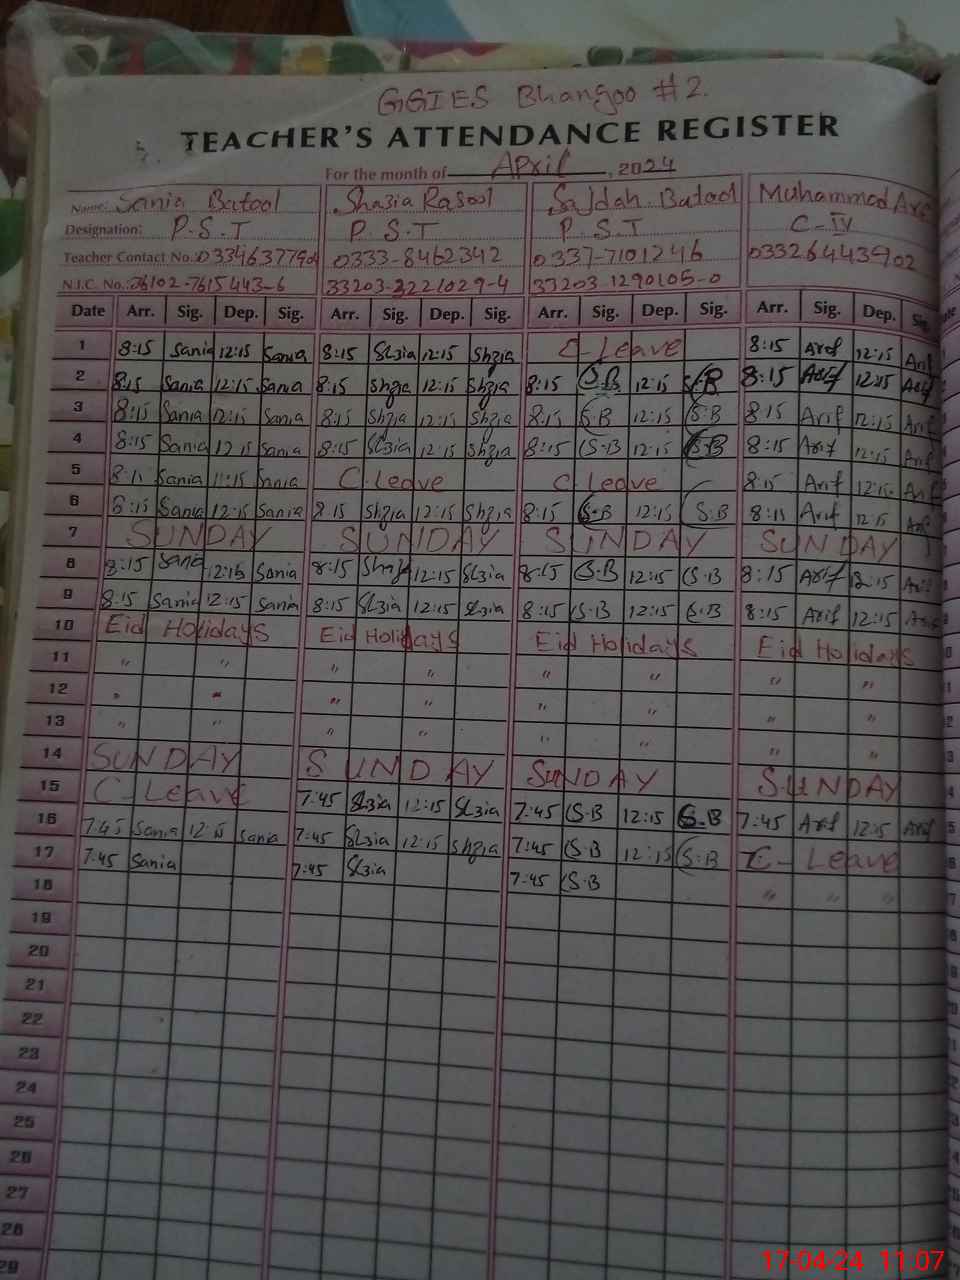 GGIES Bhangoo #2.
TEACHER'S ATTENDANCE REGISTER
For the month of April, 2024
Name: Sania Batool Shazia Rasool Sajdah Batool Muhammad
Designation: P.S.T P.S.T P.S.T C-IV
Teacher Contact No. 0333-8462342 0337-7101246 03326443902
N.I.C. No. 26102-7615443-6 33203-2221029-4 33203-1290105-0
Date Arr. Sig. Dep. Sig. Arr. Sig. Dep. Sig. Arr. Sig. Dep. Sig. Arr. Sig. Dep. Sig.
1 8:15 Sania 12:15 Sania 8:15 Shzia 12:15 Shzia C-Leave 8:15 Arif 12:15 Arif
2 8:15 Sania 12:15 Sania 8:15 Shzia 12:15 Shzia 8:15 S.B 12:15 S.B 8:15 Arif 12:15 Arif
3 8:15 Sania 12:15 Sania 8:15 Shzia 12:15 Shzia 8:15 S.B 12:15 S.B 8:15 Arif 12:15 Arif
4 8:15 Sania 12:15 Sania 8:15 Shzia 12:15 Shzia 8:15 S-B 12:15 S.B 8:15 Arif 12:15 Arif
5 Sania Sania C-Leave C-Leave 8:15 Arif 12:15 Arif
6 8:15 Sania 12:15 Sania 8:15 Shzia 12:15 Shzia 8:15 S.B 12:15 S.B Arif 12:15 Arif
7 SUNDAY SUNDAY SUNDAY SUNDAY
8 8:15 Sania 12:15 Sania 8:15 12:15 Shzia 8:15 S.B 12:15 S.B 8:15 Arif 12:15 Arif
9 8:15 Sania 12:15 Sania 8:15 Shzia 12:15 Shzia 8:15 S.B 12:15 S.B 8:15 Arif 12:15 Arif
10 Eid Holidays Eid Holidays Eid Holidays Eid Holidays
11 " " " " " " " "
12 " " " " " " " "
13 " " " " " " " "
14 SUNDAY SUNDAY SUNDAY SUNDAY
15 C-Leave 7:45 Shzia 12:15 Shzia 7:45 S.B 12:15 S.B 7:45 Arif 12:15 Arif
16 7:45 Sania 12:15 Sania 7:45 Shzia 12:15 Shzia 7:45 S.B 12:15 S.B C-Leave
17 7:45 Sania 7:45 Shzia 7:45 S.B " " "
18
19
20
21
22
23
24
25
26
27
28
29
17-04-24 11:07